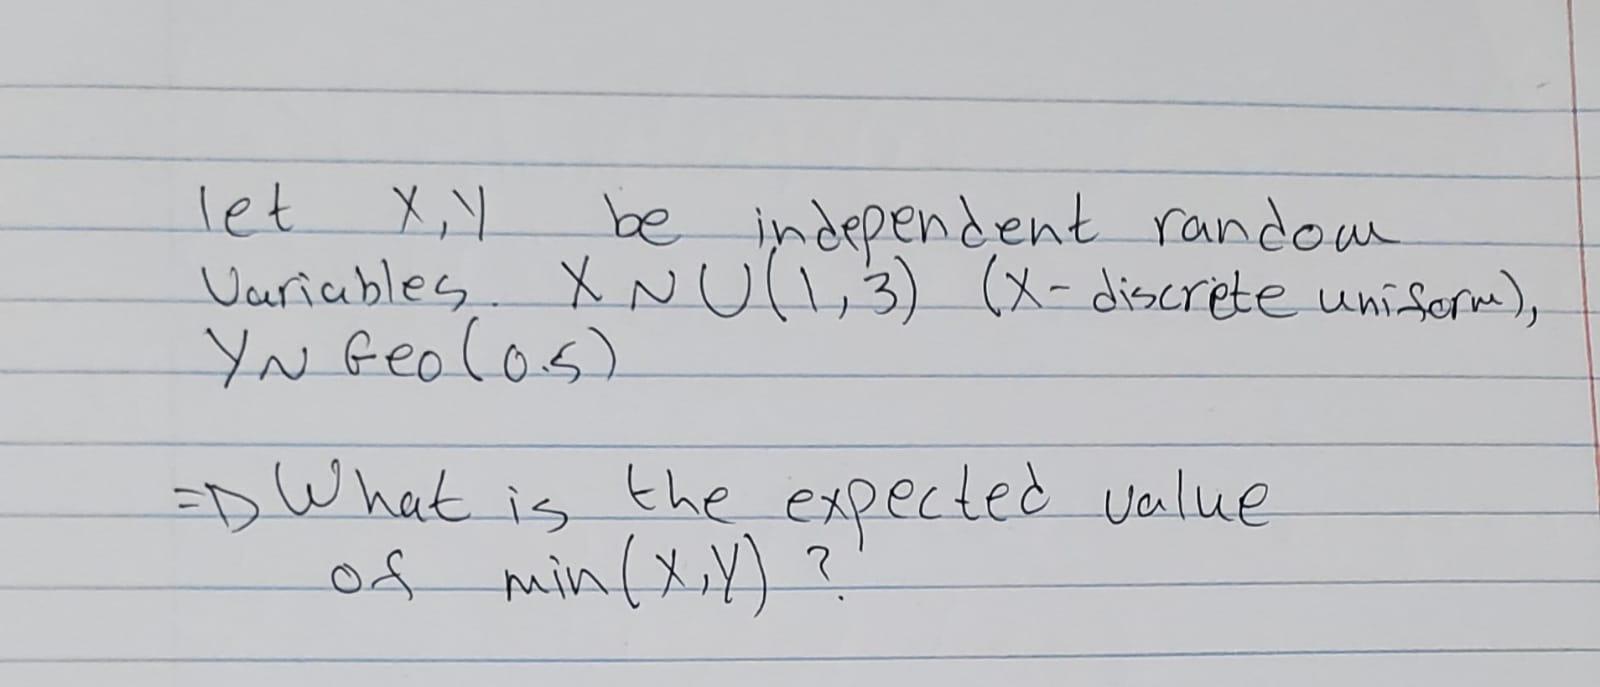 let X,Y be independent random
Variables. X ~ U(1,3) (X- discrete uniform),
Y~ Geo(0.5)
=> What is the expected value
of min(X,Y) ?